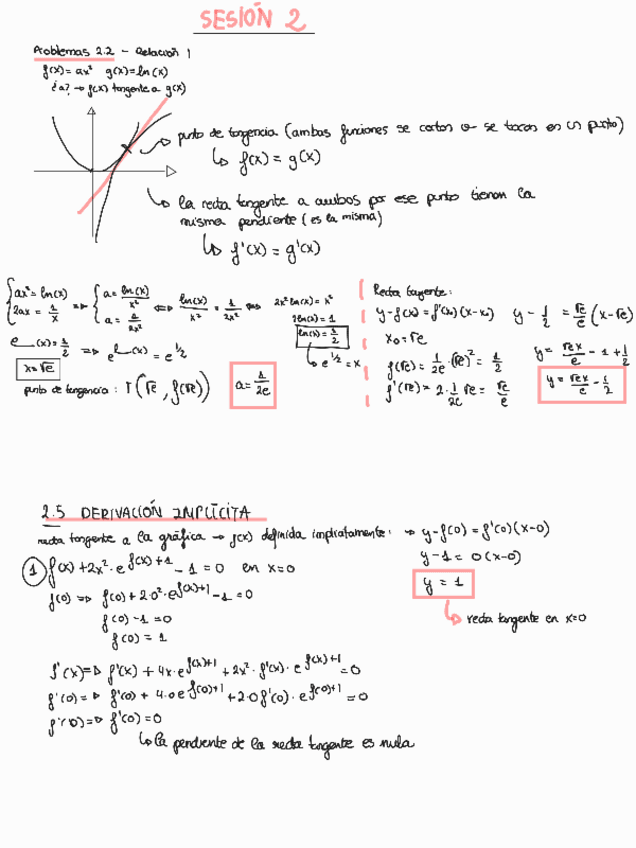 SESIÓN 2
Problemas 2.2 - Relación 1
f(x) = ax² g(x) = ln(x)
¿a? → f(x) tangente a g(x)
punto de tangencia (ambas funciones se cortan o se tocan en un punto)
↳ f(x) = g(x)
la recta tangente a ambos por ese punto tienen la
misma pendiente (es la misma)
↳ f'(x) = g'(x)
{ax² = ln(x) ⇒ {a = ln(x)/x² ⇔ ln(x)/x² = 1/2x² ⇔ 2x² ln(x) = x²
2ax = 1/x a = 1/2x² 2ln(x) = 1
ln(x) = 1/2
↳ e^1/2 = x
e^ln(x) = 1/2 ⇒ e^ln(x) = e^1/2
x = √e
punto de tangencia: T(√e, f(√e)) a = 1/2e
Recta tangente:
y - f(x₀) = f'(x₀)(x - x₀) y - 1/2 = √e/e (x - √e)
x₀ = √e
f(√e) = 1/2e · (√e)² = 1/2 y = √e x/e - 1 + 1/2
f'(√e) = 2 · 1/2e √e = √e/e y = √e x/e - 1/2
2.5 DERIVACIÓN IMPLÍCITA
recta tangente a la gráfica → f(x) definida implícitamente: → y - f(0) = f'(0)(x - 0)
① f(x) + 2x² · e^f(x)+1 - 1 = 0 en x = 0 y - 1 = 0(x - 0)
f(0) ⇒ f(0) + 2·0² · e^f(x)+1 - 1 = 0 y = 1
f(0) - 1 = 0 ↳ recta tangente en x=0
f(0) = 1
f'(x) ⇒ f'(x) + 4x · e^f(x)+1 + 2x² · f'(x) · e^f(x)+1 = 0
f'(0) = ⇒ f'(0) + 4·0 e^f(0)+1 + 2·0 f'(0) · e^f(0)+1 = 0
f'(0) ⇒ f'(0) = 0
↳ la pendiente de la recta tangente es nula